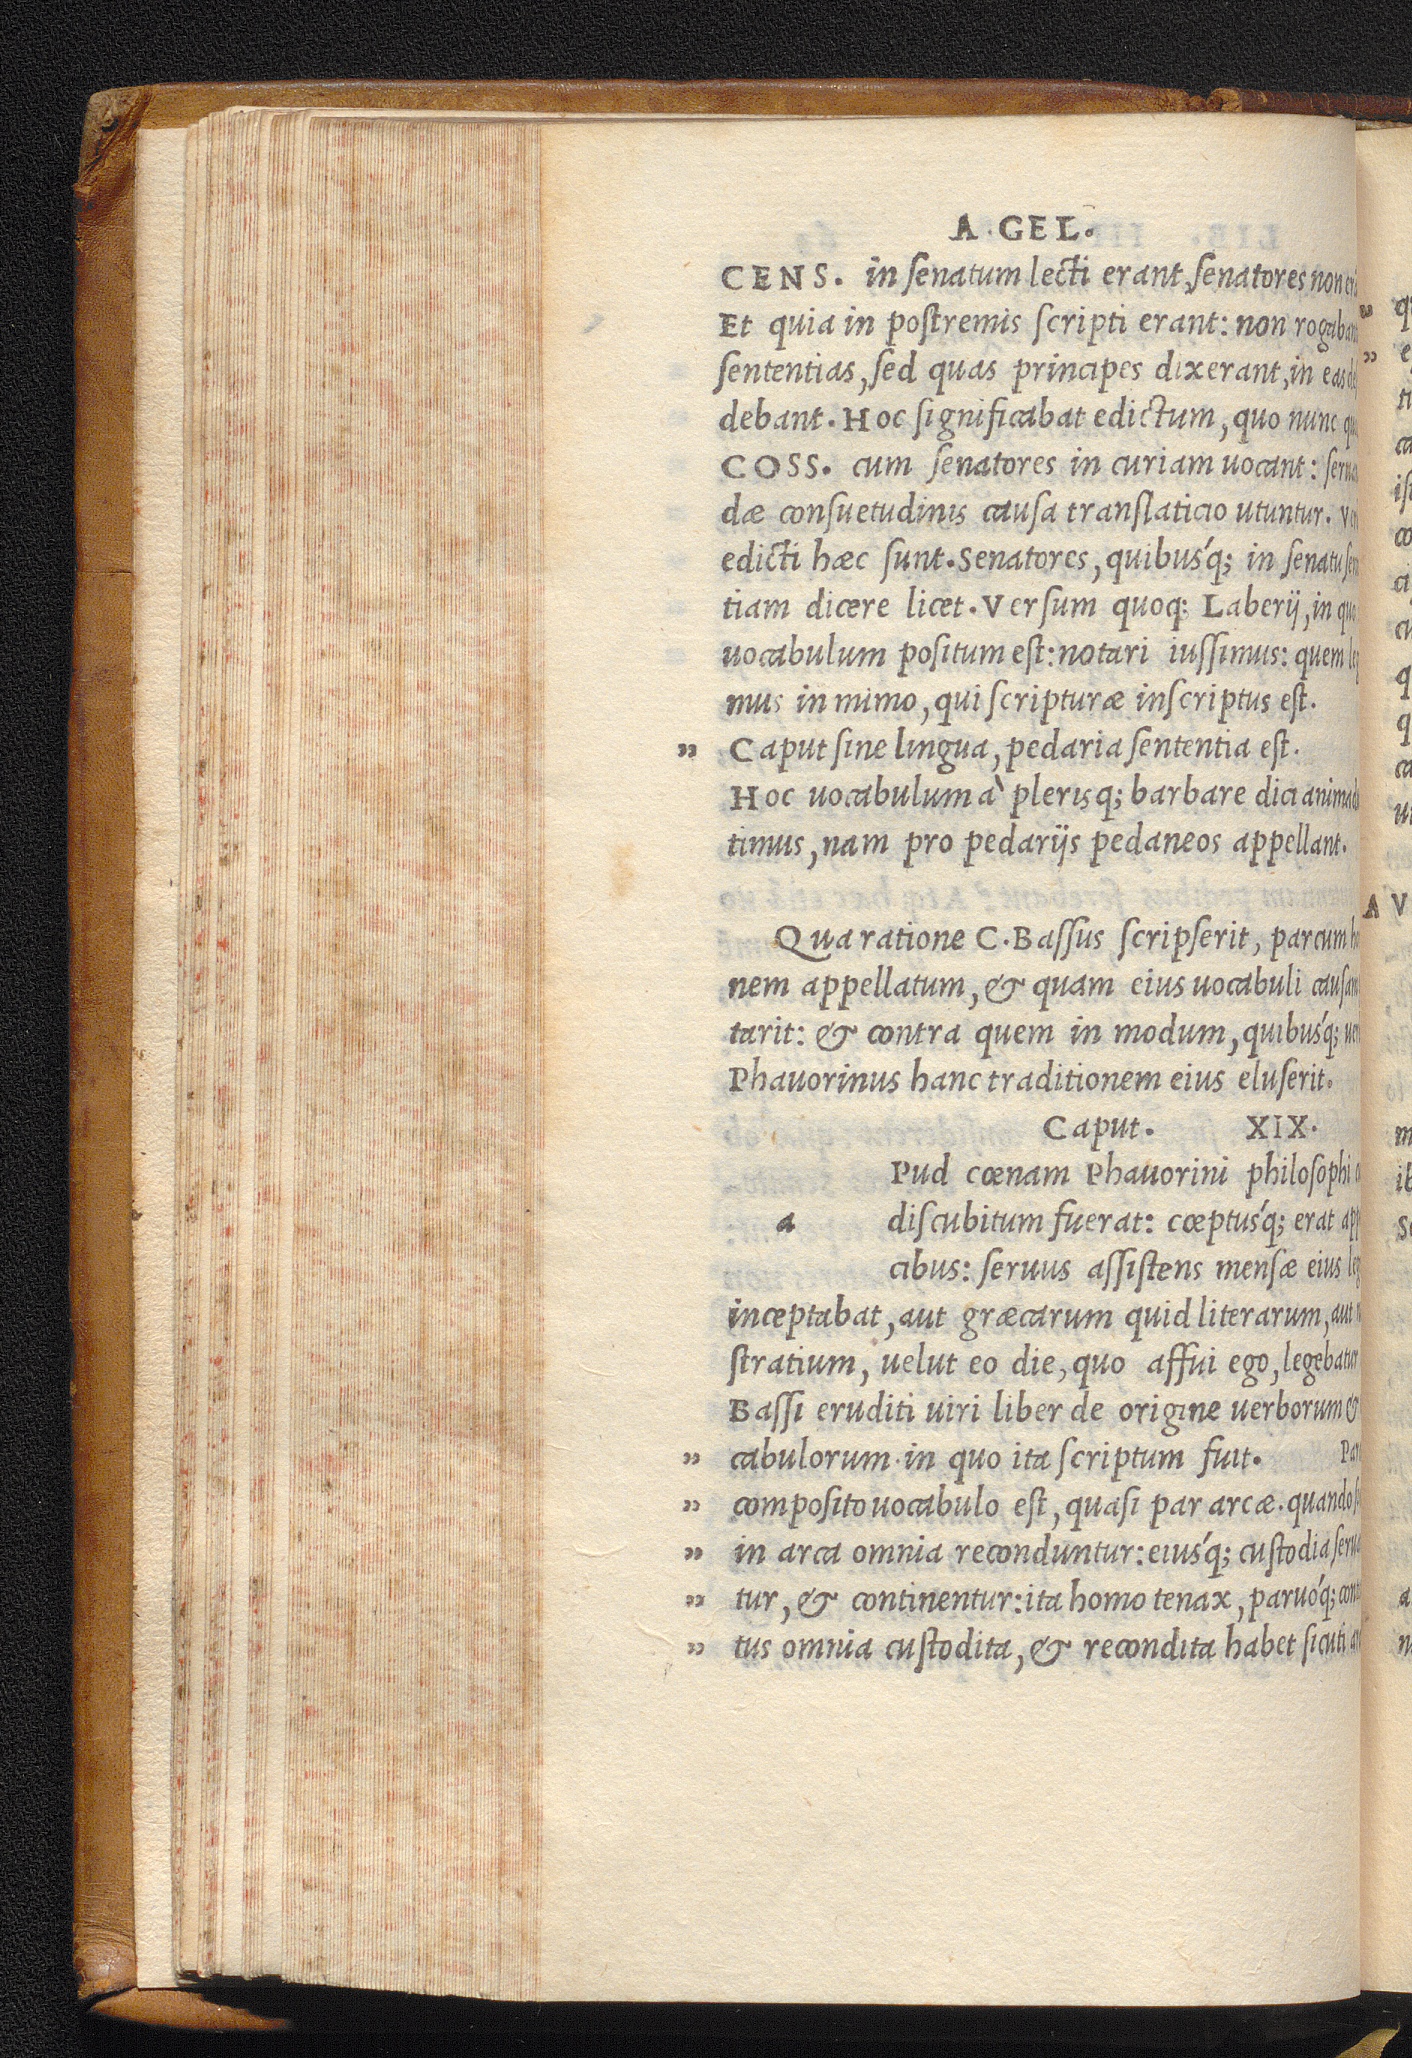 A. GEL.
CENS. in ſenatum lecti erant, ſenatores non
Et quia in poſtremis ſcripti erant: non
ſententias, ſed quas principes dixerant, in eas
debant. Hoc ſignificabat edictum, quo nunc
COSS. cum ſenatores in curiam uocant:
dæ conſuetudinis cauſa tranſlaticio utuntur.
edicti hæc ſunt. Senatores, quibuſq́; in ſenatu
tiam dicere licet. Verſum quoq: Laberij, in
uocabulum poſitum eſt: notari iuſſimus: quem
mus in mimo, qui ſcripturæ inſcriptus eſt.
” Caput ſine lingua, pedaria ſententia eſt.
Hoc uocabulum à plerisq; barbare dici
timus, nam pro pedarijs pedaneos appellant.
Qua ratione C. Baſſus ſcripſerit, parcum
nem appellatum, & quam eius uocabuli
tarit: & contra quem in modum, quibuſq́;
Phauorinus hanc traditionem eius eluſerit.
Caput. XIX.
Pud cœnam Phauorini philoſophi
a diſcubitum fuerat: cœptuſq́; erat
cibus: ſeruus aſſiſtens menſæ eius
inceptabat, aut græcarum quid literarum, aut
ſtratium, uelut eo die, quo affui ego, legebatur
Baſſi eruditi uiri liber de origine uerborum &
” cabulorum. in quo ita ſcriptum fuit.
” compoſito uocabulo eſt, quaſi par arcæ. quando
” in arca omnia reconduntur: eiuſq́; cuſtodia
” tur, & continentur: ita homo tenax, paruóq;
” tus omnia cuſtodita, & recondita habet ſicuti